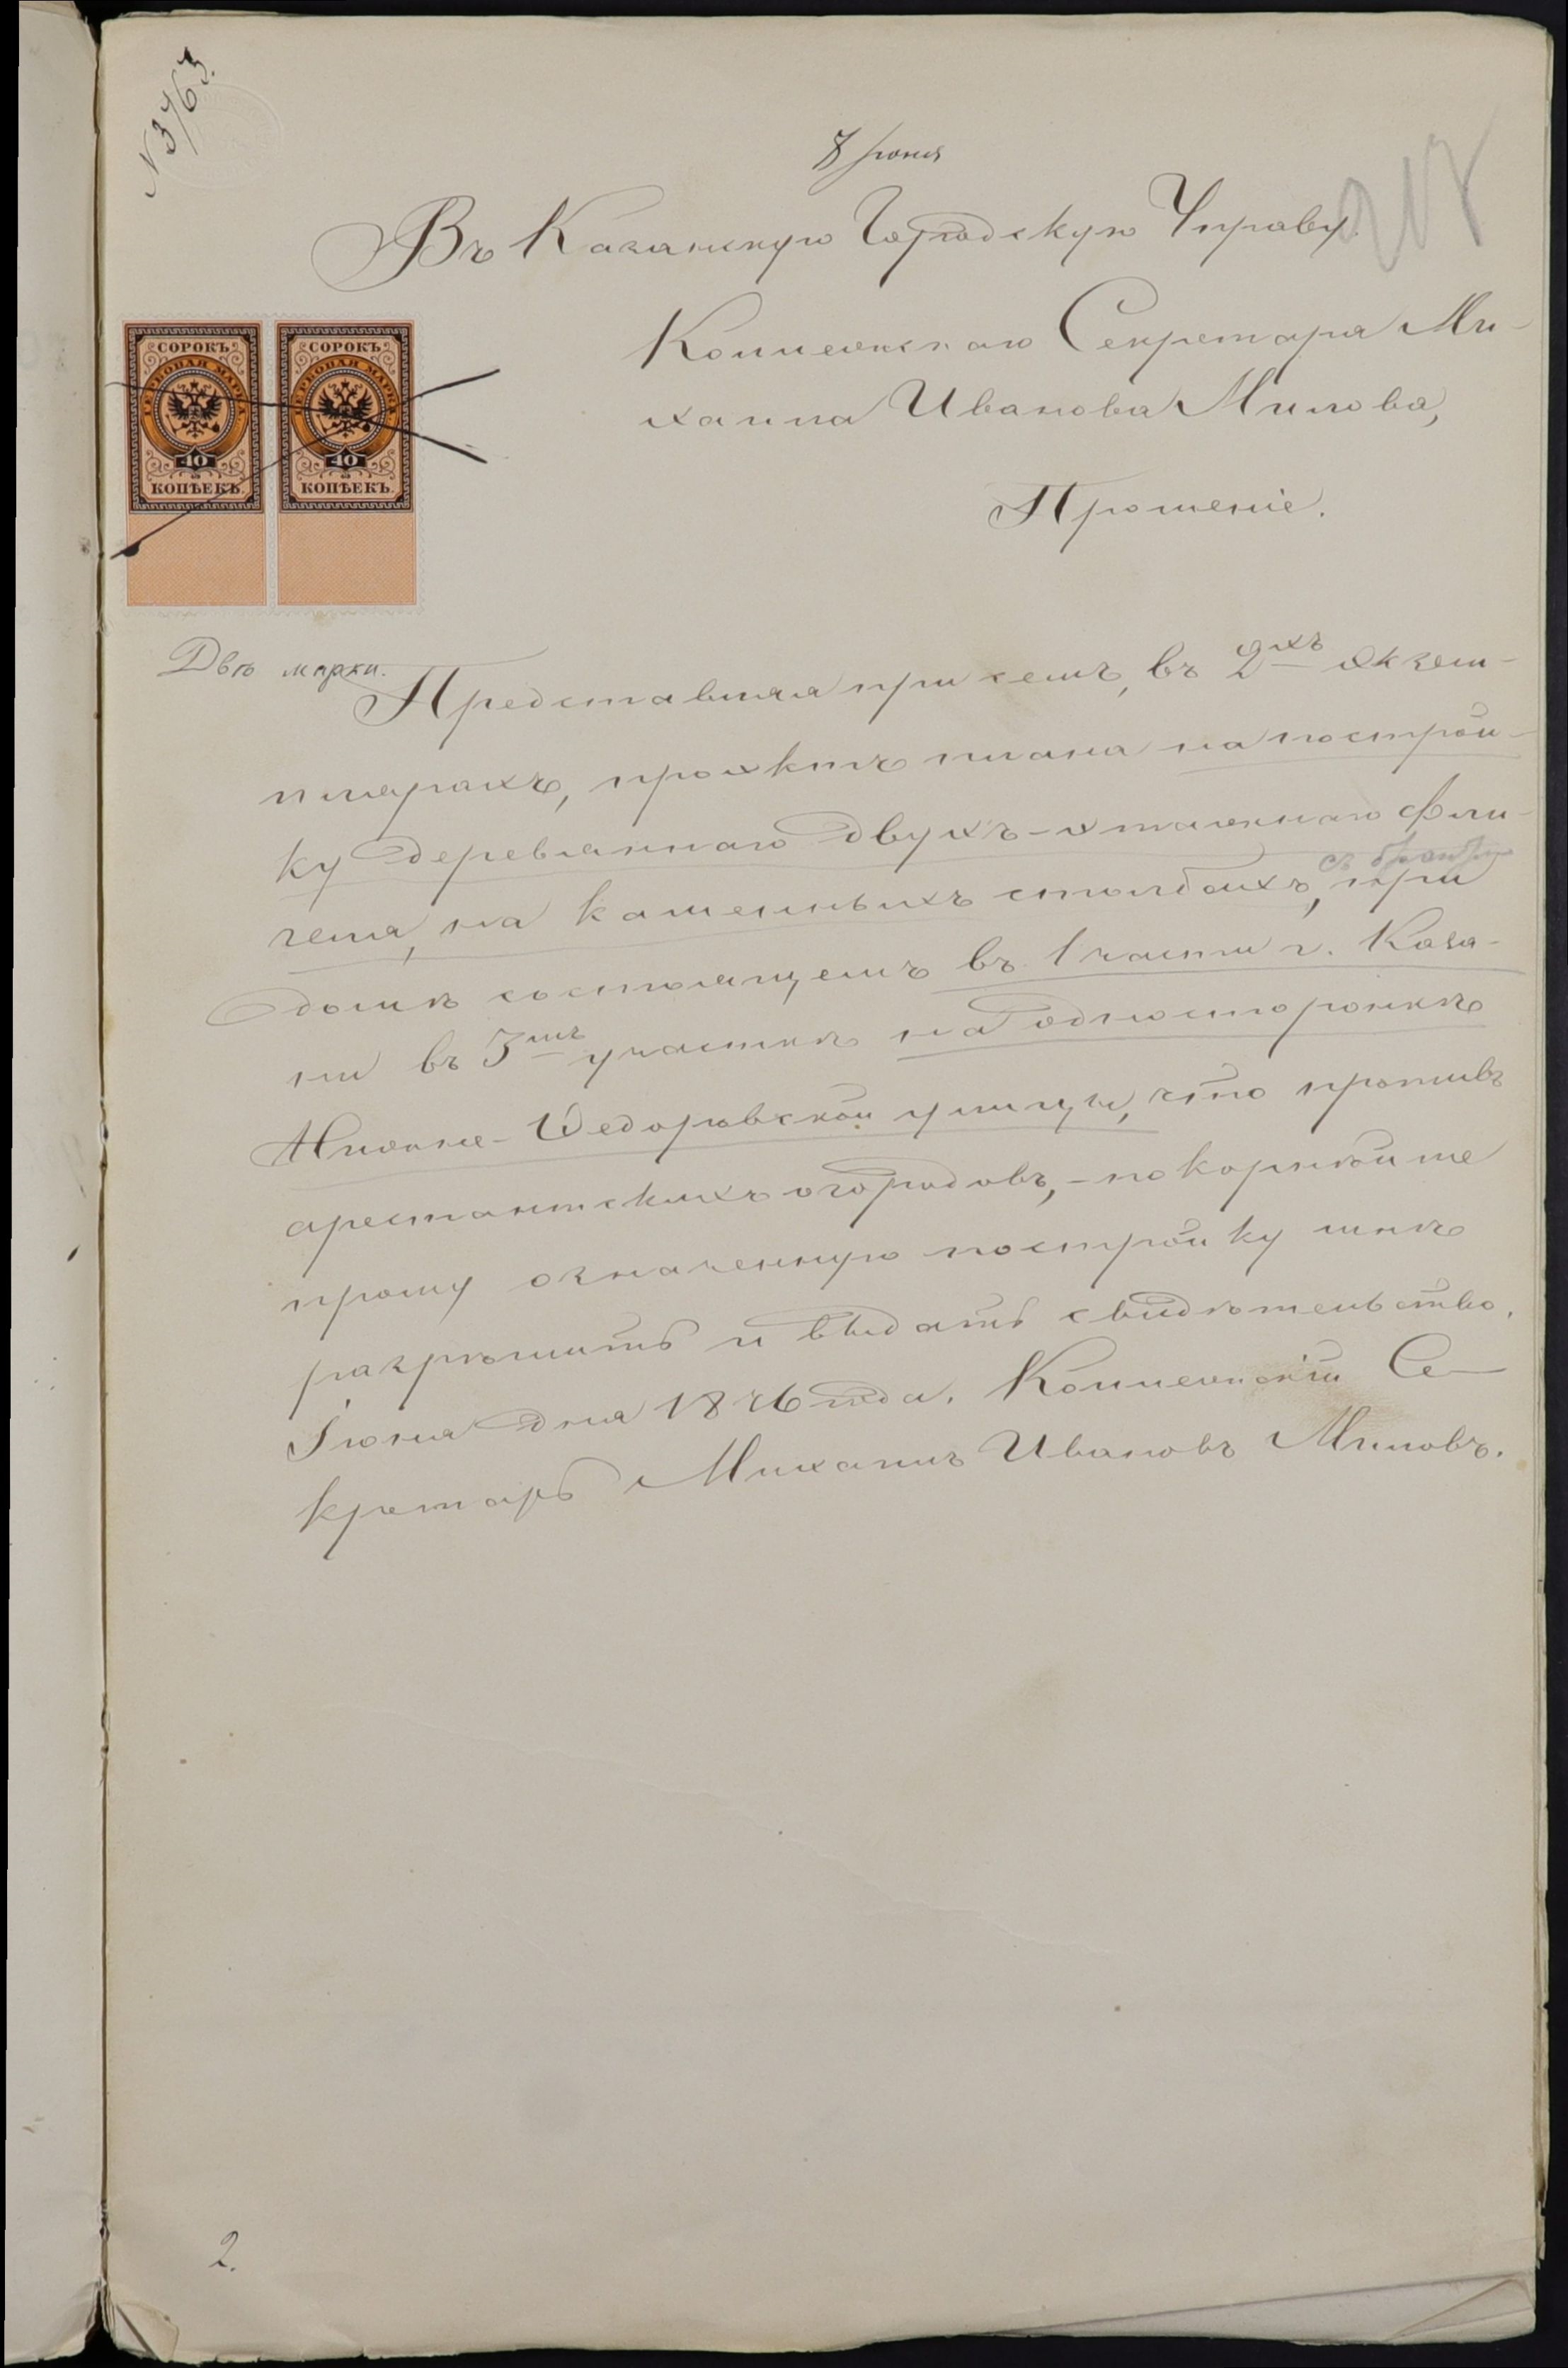 N 3763.
8 Іюня
Въ Казанскую Городскую Управу.
218
Коллежскаго Секретаря Ми-
хаила Иванова Милова,
Прошеніе.
СОРОКЪ
ГЕРБОВАЯ МАРКА
40
КОПѢЕКЪ.
СОРОКЪ
ГЕРБОВАЯ МАРКА
40
КОПѢЕКЪ.
Двѣ марки.
Представляя при семъ, въ 2хъ экзем-
плярахъ, проэктъ плана на построй-
ку деревяннаго двухъ-этажнаго фли-
геля, на каменныхъ столбахъ, при
домѣ состоящемъ въ 1 части г. Каза-
ни въ 3мъ участкѣ на одностороннѣ
Нижне-Ѳедоровской улицы, что противъ
арестантскихъ огородовъ,-покорнѣйше
прошу означенную постройку мнѣ
разрѣшить и выдать свидѣтельство.
Іюня дня 1876 года. Коллежскій Се-
кретарь Михаилъ Ивановъ Миловъ.
2.